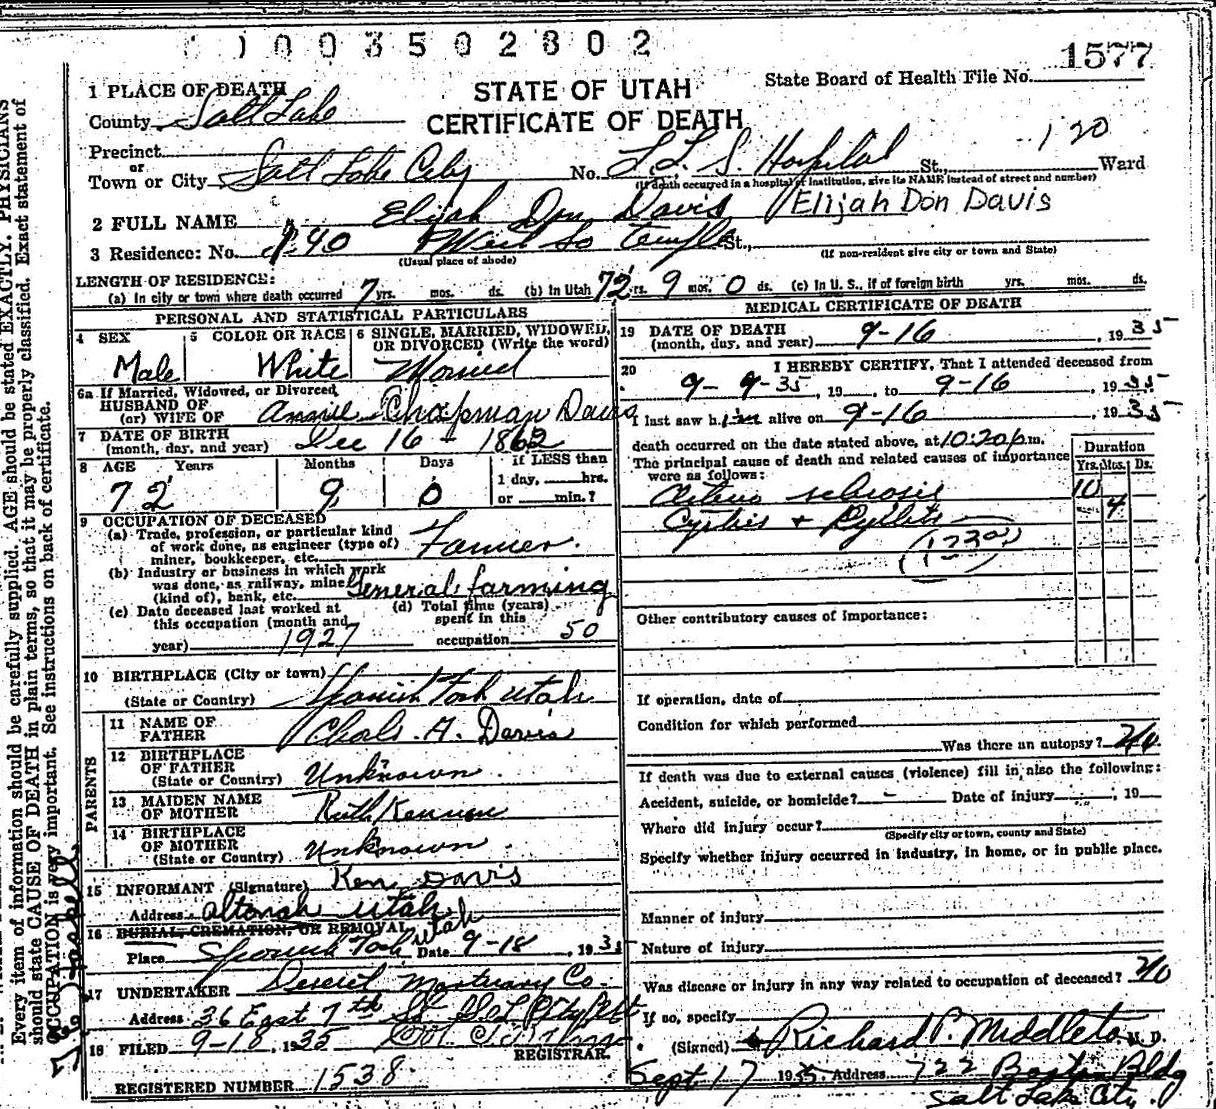 1003502802
1577
State Board of Health File No.
STATE OF UTAH
CERTIFICATE OF DEATH
1 PLACE OF DEATH
County Salt Lake
120
Precinct
or
Town or City Salt Lake City No. L. D. S. Hospital St., Ward
(If death occurred in a hospital or institution, give its NAME instead of street and number)
2 FULL NAME Elijah Don Davis Elijah Don Davis
3 Residence: No. 140 West So Temple St.,
(Usual place of abode) (If non-resident give city or town and State)
LENGTH OF RESIDENCE:
(a) In city or town where death occurred 7 yrs. mos. ds. (b) In Utah 72 yrs. 9 mos. 0 ds. (c) In U. S., if of foreign birth yrs. mos. ds.
PERSONAL AND STATISTICAL PARTICULARS
4 SEX 5 COLOR OR RACE 6 SINGLE, MARRIED, WIDOWED, OR DIVORCED (Write the word)
Male White Married
6a If Married, Widowed, or Divorced
HUSBAND OF
(or) WIFE OF Annie Chapman Davis
7 DATE OF BIRTH
(month, day, and year) Dec 16 - 1862
8 AGE Years Months Days If LESS than
1 day, hrs.
or min.?
72 9 0
9 OCCUPATION OF DECEASED
(a) Trade, profession, or particular kind
of work done, as engineer (type of)
miner, bookkeeper, etc. Farmer.
(b) Industry or business in which work
was done, as railway, mine
(kind of), bank, etc. General farming
(c) Date deceased last worked at
this occupation (month and
year) 1927
(d) Total time (years)
spent in this
occupation 50
10 BIRTHPLACE (City or town)
(State or Country) Spanish Fork Utah
PARENTS
11 NAME OF
FATHER Chals. A. Davis
12 BIRTHPLACE
OF FATHER
(State or Country) Unknown
13 MAIDEN NAME
OF MOTHER Ruth
14 BIRTHPLACE
OF MOTHER
(State or Country) Unknown
15 INFORMANT (Signature) Ken Davis
Address Altonah Utah
16 BURIAL, CREMATION, OR REMOVAL
Place Spanish Fork Utah Date 9-18, 1935
17 UNDERTAKER Deseret Mortuary Co.
Address 36 East 7th So. S L City Utah
18 FILED 9-18, 1935
REGISTRAR.
REGISTERED NUMBER 1538
MEDICAL CERTIFICATE OF DEATH
19 DATE OF DEATH
(month, day, and year) 9-16, 1935
20 I HEREBY CERTIFY, That I attended deceased from
9-9-35, 19 , to 9-16, 1935
I last saw him alive on 9-16, 1935
death occurred on the date stated above, at 10:20 p.m.
The principal cause of death and related causes of importance
were as follows:
Duration
Yrs. Mos. Ds.
Arterio sclerosis 10
Cystitis + Pyelitis 4
Other contributory causes of importance:
If operation, date of
Condition for which performed
Was there an autopsy? No
If death was due to external causes (violence) fill in also the following:
Accident, suicide, or homicide? - Date of injury , 19
Where did injury occur?
(Specify city or town, county and State)
Specify whether injury occurred in industry, in home, or in public place.
Manner of injury
Nature of injury
Was disease or injury in any way related to occupation of deceased? No
If so, specify
(Signed) Richard P. Middleton M. D.
Sept 17 1935 Address 722 Boston Bldg
Salt Lake City
Every item of information should be carefully supplied. AGE should be stated EXACTLY. PHYSICIANS
should state CAUSE OF DEATH in plain terms, so that it may be properly classified. Exact statement of
OCCUPATION is very important. See instructions on back of certificate.